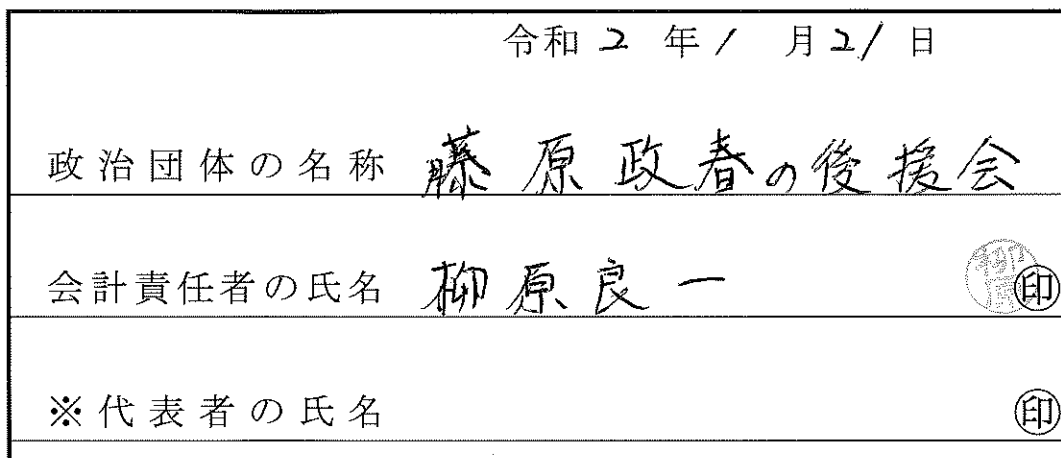 令和 2 年 1 月 21 日
政治団体の名称 藤原政春の後援会
会計責任者の氏名 柳原良一 柳原 ㊞
※代表者の氏名 ㊞